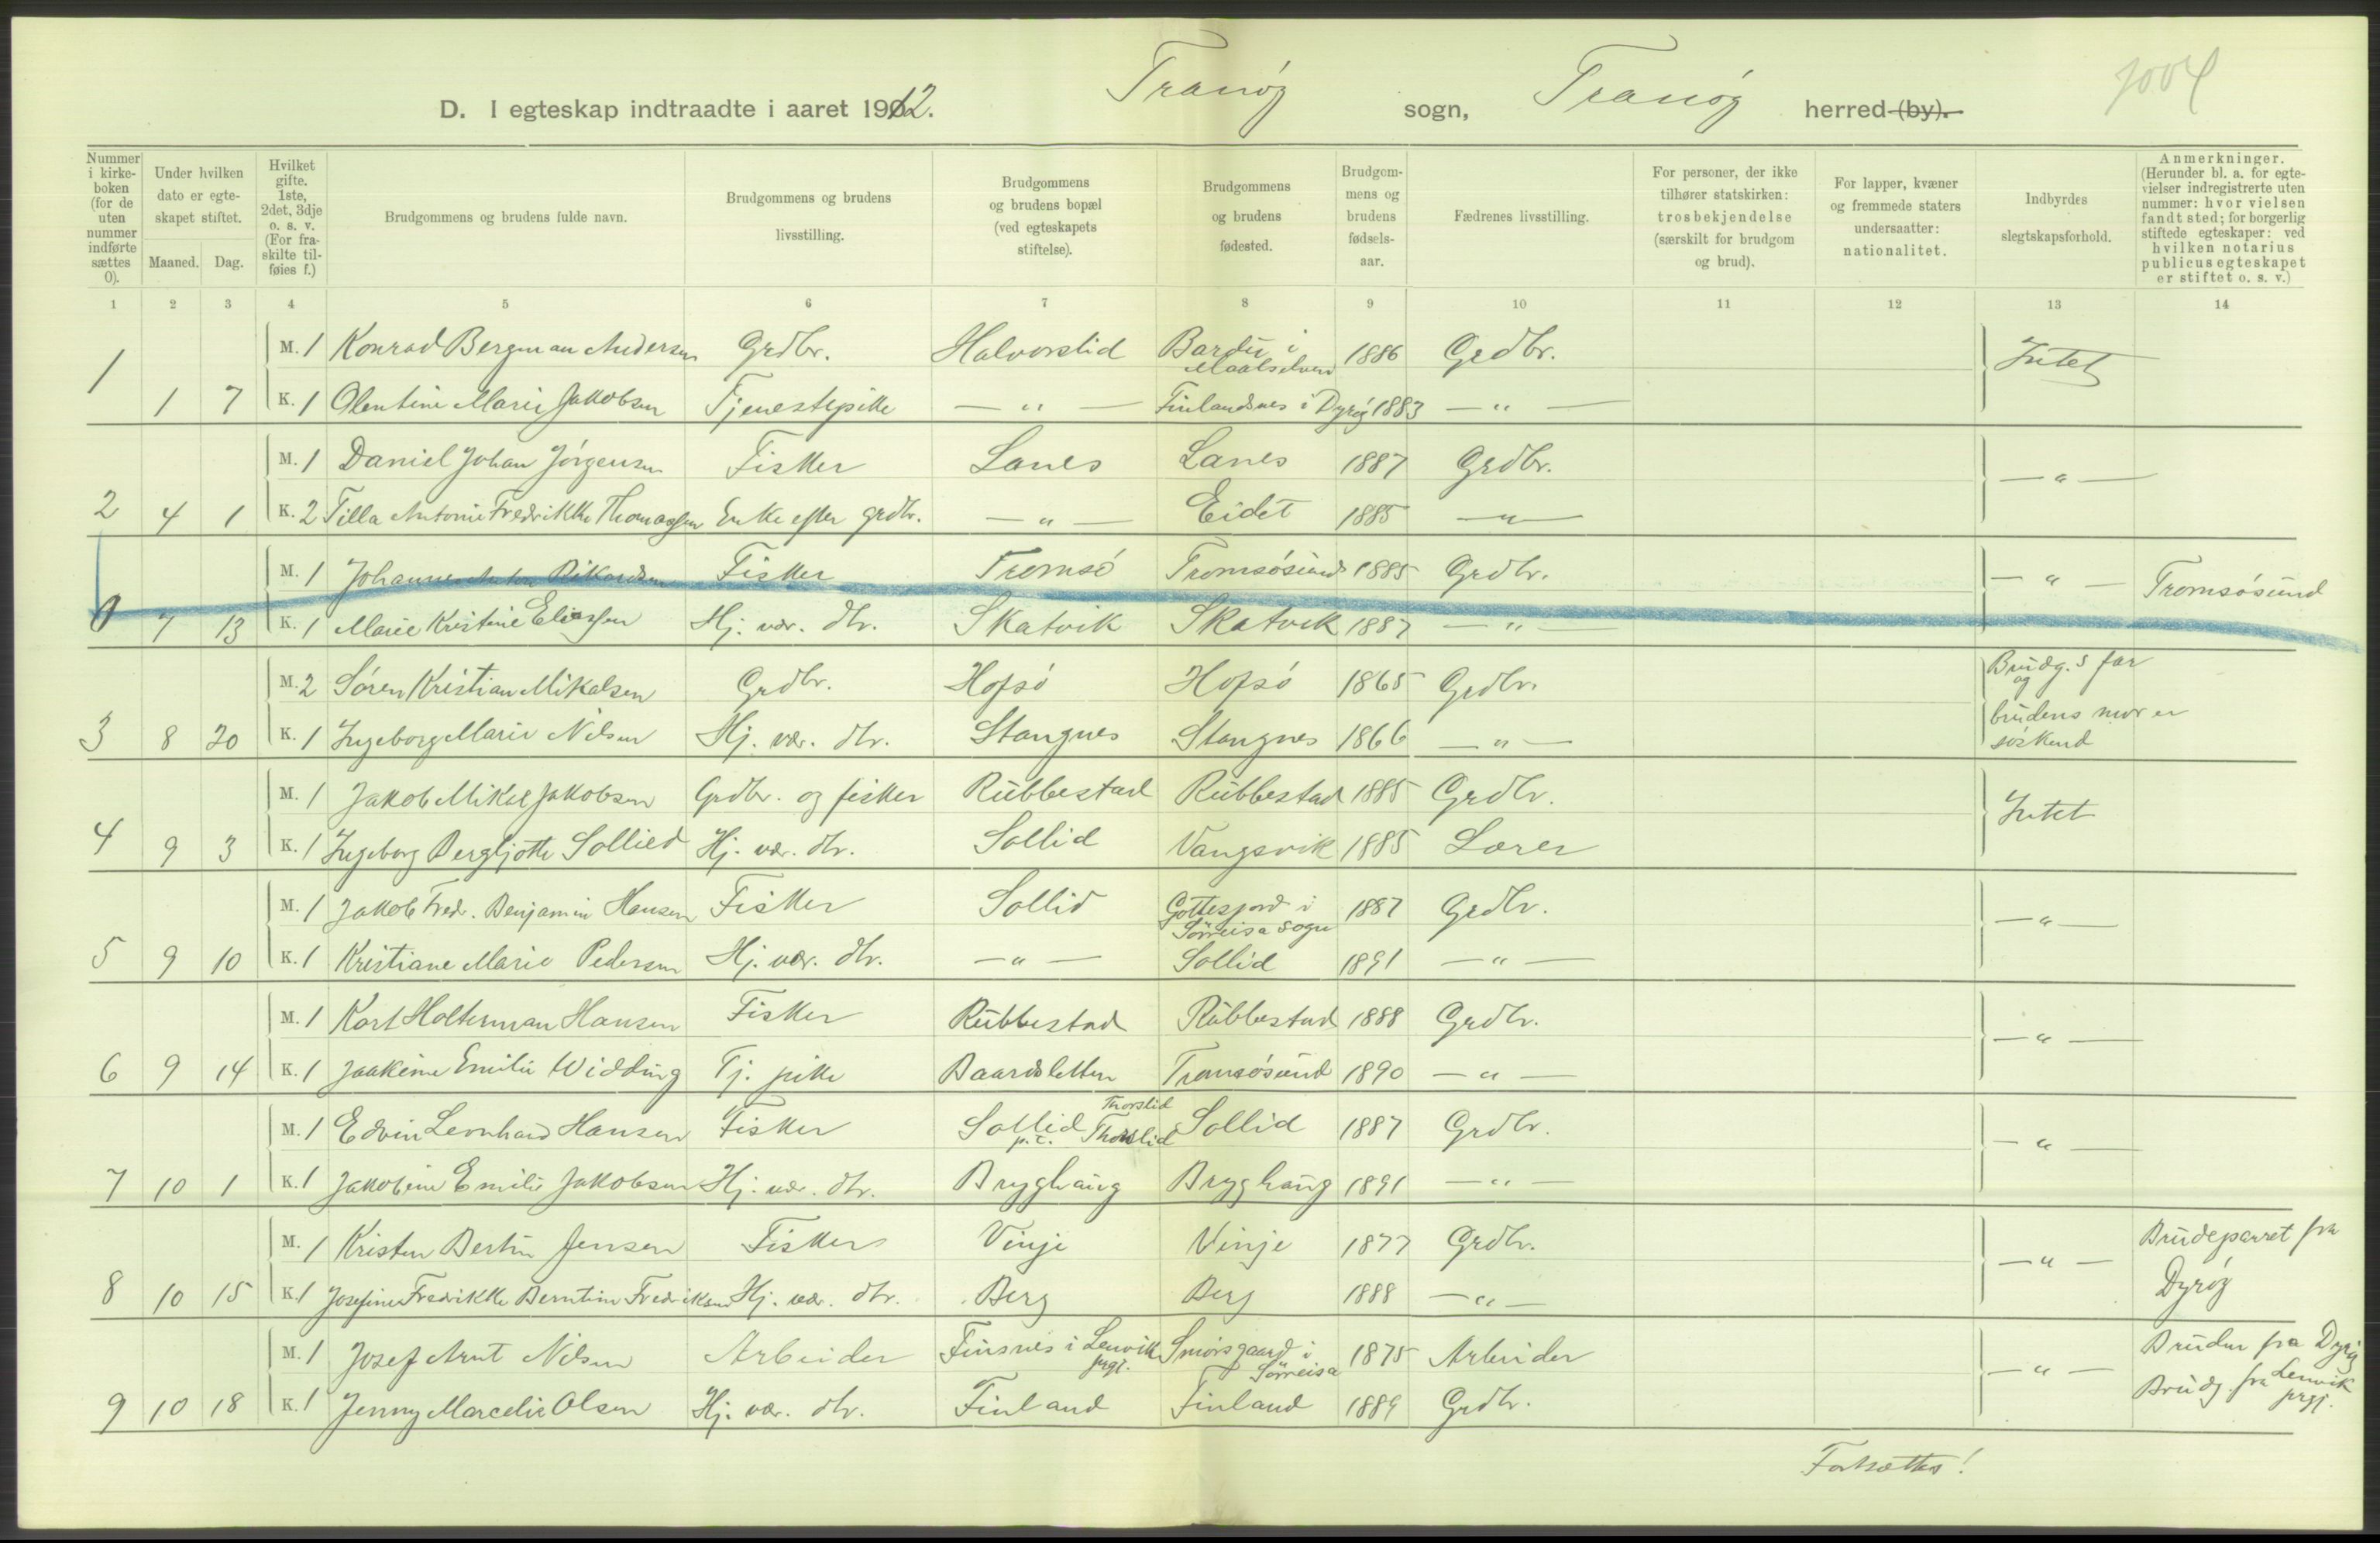 Tranøy Tranøy 7004
D. I egteskap indtraadte i aaret 1912. sogn, herred (by).
Nummer i kirkeboken (for de uten nummer indførte sættes 0).
Under hvilken dato er egteskapet stiftet.
Maaned. Dag.
Hvilket gifte. 1ste, 2det, 3dje o. s. v. (For fraskilte tilføies f.)
Brudgommens og brudens fulde navn.
Brudgommens og brudens livsstilling.
Brudgommens og brudens bopæl (ved egteskapets stiftelse).
Brudgommens og brudens fødested.
Brudgommens og brudens fødselsaar.
Fædrenes livsstilling.
For personer, der ikke tilhører statskirken: trosbekjendelse (særskilt for brudgom og brud).
For lapper, kvæner og fremmede staters undersaatter: nationalitet.
Indbyrdes slegtskapsforhold.
Anmerkninger. (Herunder bl. a. for egtevielser indregistrerte uten nummer: hvor vielsen fandt sted; for borgerlig stiftede egteskaper: ved hvilken notarius publicus egteskapet er stiftet o. s. v.)
1 2 3 4 5 6 7 8 9 10 11 12 13 14
M. 1 Konrad Bergman Andersen Grdbr. Halvorslid Bardu i Maalselven 1886 Grdbr. Intet
1 1 7 K. 1 Olentine Marie Jakobsen Tjenestepike — " — Finlandsnes i Dyrøy 1883 — " —
M. 1 Daniel Johan Jørgensen Fisker Lanes Lanes 1887 Grdbr. — " —
2 4 1 K. 2 Tilla Antonie Fredrikke Thomassen Enke efter grdbr. — " — Eidet 1885 — " —
M. 1 Johannes Anton Rikardsen Fisker Tromsö Tromsøsund 1885 Grdbr. — " — Tromsøsund
0 7 13 K. 1 Marie Kristine Eliassen Hj. vær. dtr. Skatvik Skatvik 1887 — " —
M. 2 Søren Kristian Mikalsen Grdbr. Hofsö Hofsö 1865 Grdbr. Brudg.s far og
3 8 20 K. 1 Ingeborg Marie Nilsen Hj. vær. dtr. Stangnes Stangnes 1866 — " — brudens mor er söskend
M. 1 Jakob Mikal Jakobsen Grdbr. og fisker Rubbestad Rubbestad 1885 Grdbr. Intet
4 9 3 K. 1 Ingeborg Bergljotte Sollied Hj. vær. dtr. Sollid Vangsvik 1885 Lærer
M. 1 Jakob Fredr. Benjamin Hansen Fisker Sollid Gottesjord i Sörreisa sogn 1887 Grdbr. — " —
5 9 10 K. 1 Kristiane Marie Pedersen Hj. vær. dtr. — " — Sollid 1891 — " —
M. 1 Karl Holterman Hansen Fisker Rubbestad Rubbestad 1888 Grdbr. — " —
6 9 14 K. 1 Jaakime Emilie Widding Tj. pike Baardsletten Tromsøsund 1890 — " —
M. 1 Edvin Leonhard Hansen Fisker Sollid p.t. Thorslid Thorslid Sollid 1887 Grdbr. — " —
7 10 1 K. 1 Jakobine Emilie Jakobsen Hj. vær. dtr. Bryghaug Bryghaug 1891 — " —
M. 1 Kristen Bertin Jensen Fisker Vinje Vinje 1877 Grdbr. — " — Brudeparret fra Dyrøy
8 10 15 K. 1 Josefine Fredrikke Berntine Fredriksen Hj. vær. dtr. Berg Berg 1888 — " —
M. 1 Josef Arnt Nilsen Arbeider Finsnes i Lenvik prgj. Smörsgaard i Sörreisa 1875 Arbeider — " — Bruden fra Dyrøy
9 10 18 K. 1 Jenny Marcelie Olsen Hj. vær. dtr. Finland Finland 1889 Grdbr. Brudg. fra Lenvik prgj.
Fortsættes!